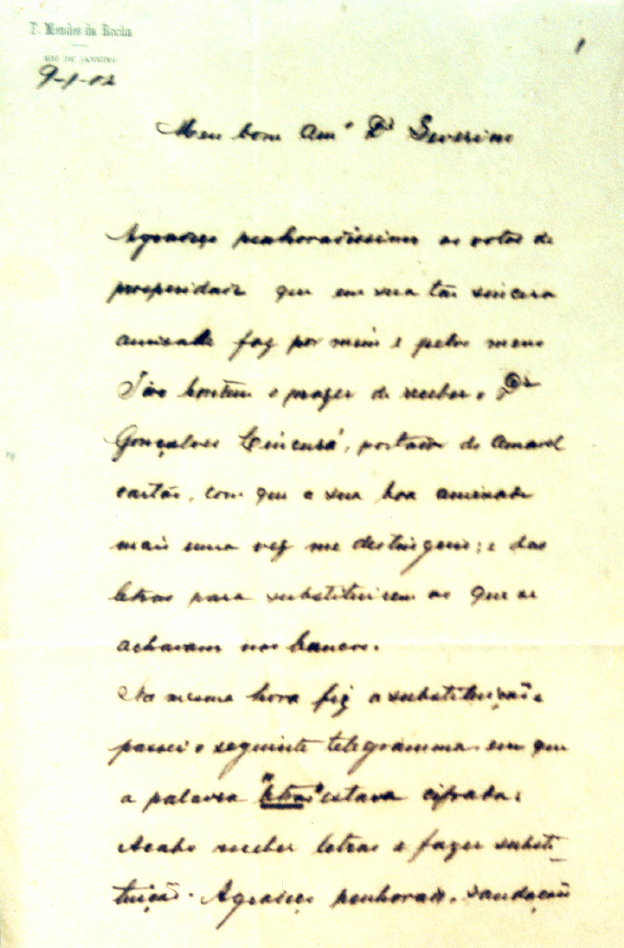 F. Mendes da Rocha
RIO DE JANEIRO
9-1-02
1
Meu bom Amº Dr Severino
Agradeço penhoradissimo os votos de
prosperidade que em sua tão sincera
amizade faz por mim e pelos meus
Tive hontem o prazer de receber o Dr
Gonçalves , portador do amavel
cartão, com que a sua boa amizade
mais uma vez me destinguio; e das
letras para substituirem as que se
achavam nos bancos.
Na mesma hora fiz a substituição e
passei o seguinte telegramma em que
a palavra "letras" estava cifrada:
Acabo receber letras e fazer substi-
tuição. Agradeço penhorado. Saudações